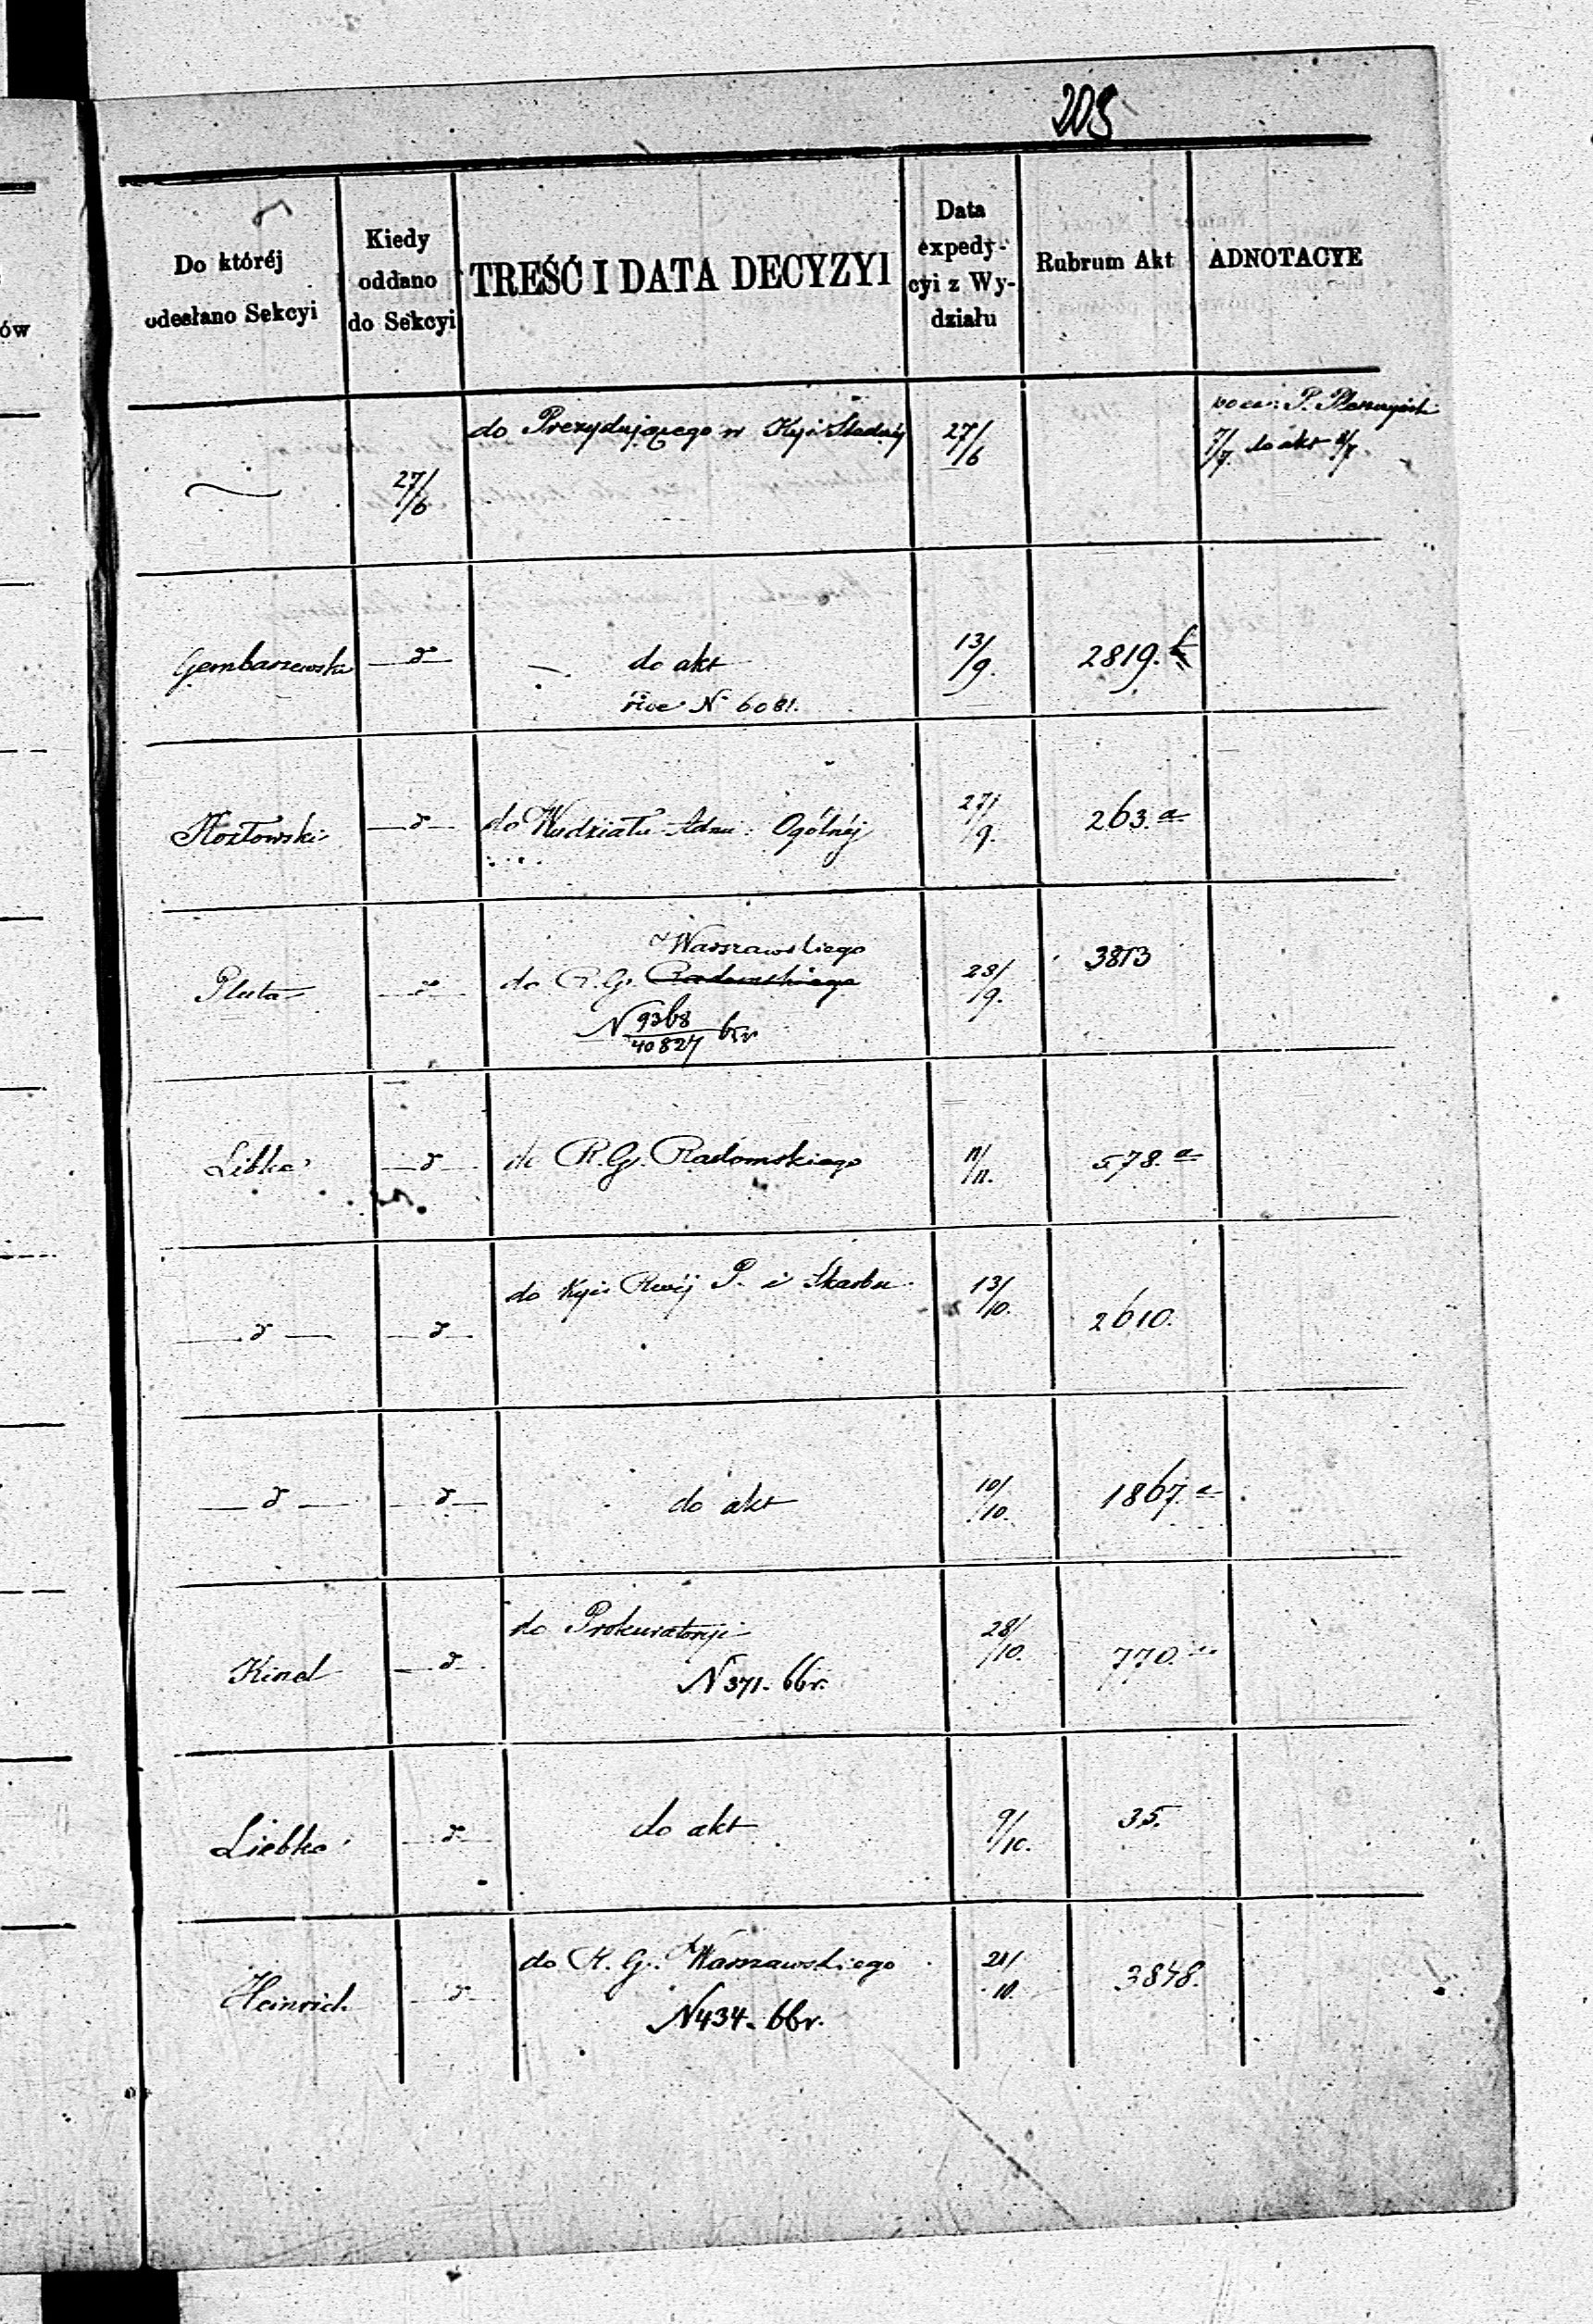 209
Do któréj
odesłano Sekcyi
Kiedy
oddano
do Sekcyi
TREŚĆ I DATA DECYZYI
Data
expedy-
cyi z Wy-
działu
Rubrum Akt
ADNOTACYE
ów
27/6
do Prezydującego w Kyi Śledczéj
27/6
P.
7/7. do akt 8/7.
Gembarzewski
d°
do akt
vide N 6081.
13/9.
2819.
Kozłowski
d°
do Wydziału Adm: Ogólnéj
27/9.
263.a
Pluta
d°
Warszawskiego
do R.G. Radomskiego
N 9368/40827 bbr
23/9.
3813
Libke
d°
do R.G. Radomskiego
11/11.
578.a
d°
d°
do Kyi Rwéj P. i Skarbu
13/10.
2610.
d°
d°
do akt
10/10.
1867.a
Kinel
d°
do Prokuratoryi
N 371. bbr.
28/10.
770.
Liebke
d°
do akt
9/10.
35.
Heinrich
d°
do R. G. Warszawskiego
N 434. bbr.
21/10.
3848.